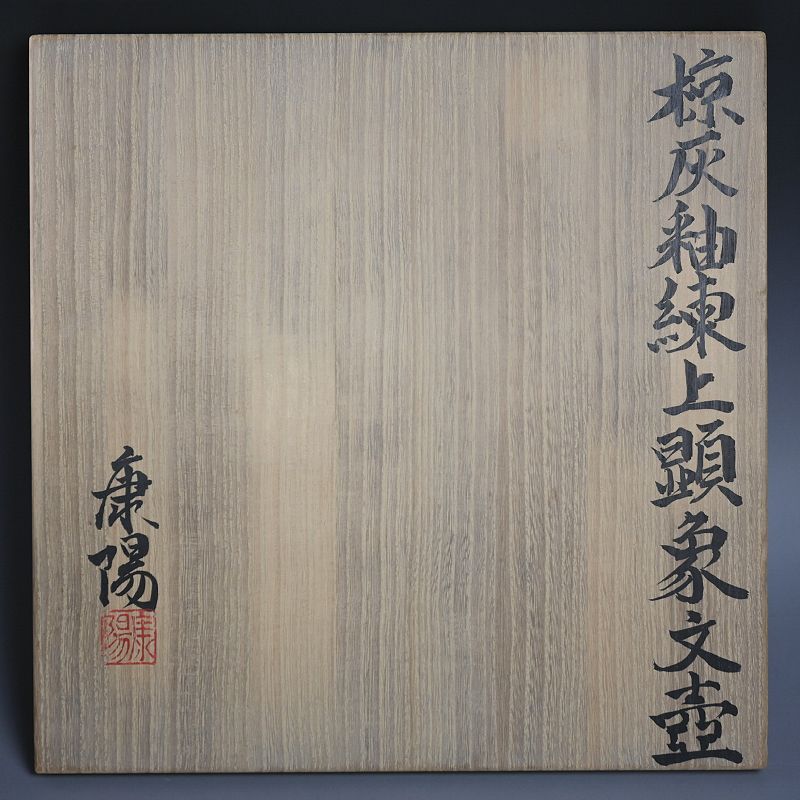 椋灰釉練上顕象文壺
康陽
康陽